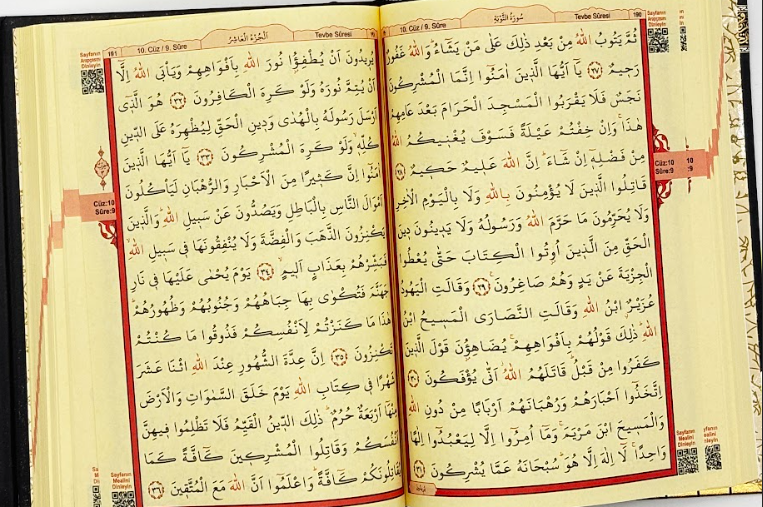 190
Tevbe Sûresi
سُورَةُ التَّوْبَةِ
10. Cüz / 9. Sûre
ثُمَّ يَتُوبُ اللهُ مِنْ بَعْدِ ذٰلِكَ عَلٰى مَنْ يَشَاءُ وَاللهُ غَفُورٌ
رَحِيمٌ ﴿٢٧﴾ يَا اَيُّهَا الَّذِينَ اٰمَنُوا اِنَّمَا الْمُشْرِكُونَ
نَجَسٌ فَلَا يَقْرَبُوا الْمَسْجِدَ الْحَرَامَ بَعْدَ عَامِهِمْ
هٰذَا وَاِنْ خِفْتُمْ عَيْلَةً فَسَوْفَ يُغْنِيكُمُ اللهُ
مِنْ فَضْلِهِ اِنْ شَاءَ اِنَّ اللهَ عَلِيمٌ حَكِيمٌ ﴿٢٨﴾
قَاتِلُوا الَّذِينَ لَا يُؤْمِنُونَ بِاللهِ وَلَا بِالْيَوْمِ الْاٰخِرِ
وَلَا يُحَرِّمُونَ مَا حَرَّمَ اللهُ وَرَسُولُهُ وَلَا يَدِينُونَ دِينَ
الْحَقِّ مِنَ الَّذِينَ اُوتُوا الْكِتَابَ حَتّٰى يُعْطُوا
الْجِزْيَةَ عَنْ يَدٍ وَهُمْ صَاغِرُونَ ﴿٢٩﴾ وَقَالَتِ الْيَهُودُ
عُزَيْرٌ ابْنُ اللهِ وَقَالَتِ النَّصَارَى الْمَسِيحُ ابْنُ
اللهِ ذٰلِكَ قَوْلُهُمْ بِاَفْوَاهِهِمْ يُضَاهِؤُنَ قَوْلَ الَّذِينَ
كَفَرُوا مِنْ قَبْلُ قَاتَلَهُمُ اللهُ اَنّٰى يُؤْفَكُونَ ﴿٣٠﴾
اِتَّخَذُوا اَحْبَارَهُمْ وَرُهْبَانَهُمْ اَرْبَابًا مِنْ دُونِ اللهِ
وَالْمَسِيحَ ابْنَ مَرْيَمَ وَمَا اُمِرُوا اِلَّا لِيَعْبُدُوا اِلٰهًا
وَاحِدًا لَا اِلٰهَ اِلَّا هُوَ سُبْحَانَهُ عَمَّا يُشْرِكُونَ ﴿٣١﴾
Cüz:10
Sûre:9
Sayfanın
Arapçasını
Dinleyin
Sayfanın
Mealini
Dinleyin
Tevbe Sûresi
اَلْجُزْءُ الْعَاشِرُ
10. Cüz / 9. Sûre
191
يُرِيدُونَ اَنْ يُطْفِؤُا نُورَ اللهِ بِاَفْوَاهِهِمْ وَيَاْبَى اللهُ اِلَّا
اَنْ يُتِمَّ نُورَهُ وَلَوْ كَرِهَ الْكَافِرُونَ ﴿٣٢﴾ هُوَ الَّذِى
اَرْسَلَ رَسُولَهُ بِالْهُدٰى وَدِينِ الْحَقِّ لِيُظْهِرَهُ عَلَى الدِّينِ
كُلِّهِ وَلَوْ كَرِهَ الْمُشْرِكُونَ ﴿٣٣﴾ يَا اَيُّهَا الَّذِينَ
اٰمَنُوا اِنَّ كَثِيرًا مِنَ الْاَحْبَارِ وَالرُّهْبَانِ لَيَاْكُلُونَ
اَمْوَالَ النَّاسِ بِالْبَاطِلِ وَيَصُدُّونَ عَنْ سَبِيلِ اللهِ وَالَّذِينَ
يَكْنِزُونَ الذَّهَبَ وَالْفِضَّةَ وَلَا يُنْفِقُونَهَا فِى سَبِيلِ اللهِ
فَبَشِّرْهُمْ بِعَذَابٍ اَلِيمٍ ﴿٣٤﴾ يَوْمَ يُحْمٰى عَلَيْهَا فِى نَارِ
جَهَنَّمَ فَتُكْوٰى بِهَا جِبَاهُهُمْ وَجُنُوبُهُمْ وَظُهُورُهُمْ
هٰذَا مَا كَنَزْتُمْ لِاَنْفُسِكُمْ فَذُوقُوا مَا كُنْتُمْ
تَكْنِزُونَ ﴿٣٥﴾ اِنَّ عِدَّةَ الشُّهُورِ عِنْدَ اللهِ اثْنَا عَشَرَ
شَهْرًا فِى كِتَابِ اللهِ يَوْمَ خَلَقَ السَّمٰوَاتِ وَالْاَرْضَ
مِنْهَا اَرْبَعَةٌ حُرُمٌ ذٰلِكَ الدِّينُ الْقَيِّمُ فَلَا تَظْلِمُوا فِيهِنَّ
اَنْفُسَكُمْ وَقَاتِلُوا الْمُشْرِكِينَ كَافَّةً كَمَا
يُقَاتِلُونَكُمْ كَافَّةً وَاعْلَمُوا اَنَّ اللهَ مَعَ الْمُتَّقِينَ ﴿٣٦﴾
Sayfanın
Arapçasını
Dinleyin
Cüz:10
Sûre:9
Sayfanın
Mealini
Dinleyin